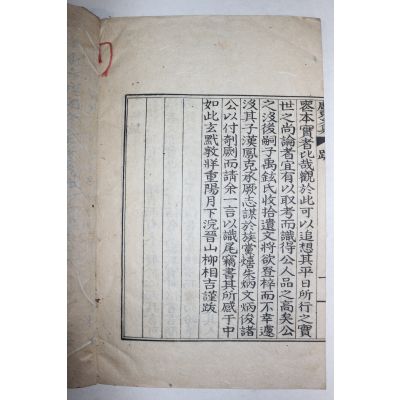 密本實者此哉觀於此可以追想其平日所行之實
世之尚論者宜有以取考而識得公人品之高矣公
之沒後嗣子禹鉉氏收拾遺文將欲登梓而不幸遽
沒其子漢鳳克承厥志謀於族黨熺朱炳文炳俊諸
公以付剞劂而請余一言以識尾竊書其所感于中
如此玄黓敦牂重陽月下浣晉山柳相吉謹跋